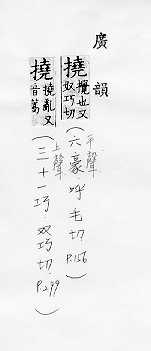 廣韻
撓 攪也又
奴巧切
平聲
(六豪呼毛切 P.156)
撓 撓亂又
音蒿
上聲
(三十一巧·奴巧切·P.299)